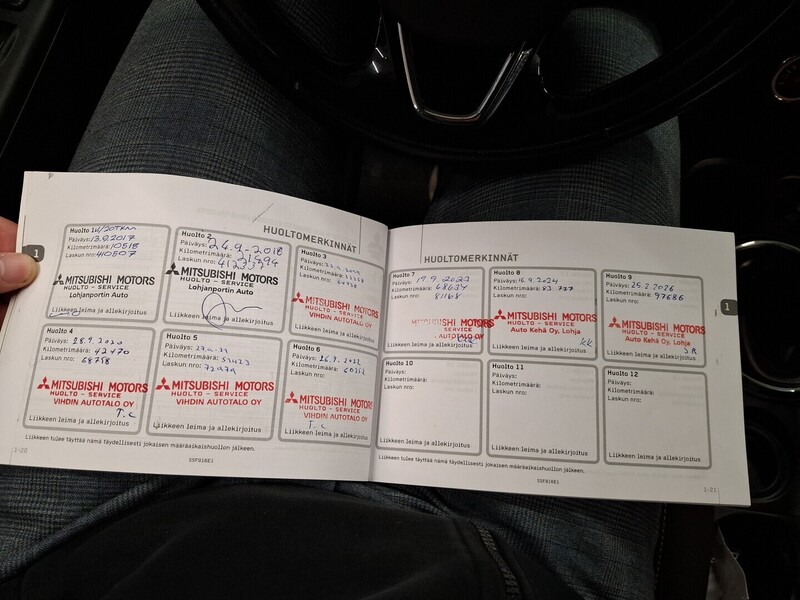 HUOLTOMERKINNÄT
Huolto 1
Päiväys: 13.9.2017
Kilometrimäärä: 10518
Laskun nro: 410507
MITSUBISHI MOTORS
HUOLTO - SERVICE
Lohjanportin Auto
Liikkeen leima ja allekirjoitus
Huolto 2
Päiväys: 24.9-2018
Kilometrimäärä: 21999
Laskun nro: 412337
MITSUBISHI MOTORS
HUOLTO - SERVICE
Lohjanportin Auto
Liikkeen leima ja allekirjoitus
Huolto 3
Päiväys:
Kilometrimäärä:
Laskun nro:
MITSUBISHI MOTORS
HUOLTO - SERVICE
VIHDIN AUTOTALO OY
Liikkeen leima ja allekirjoitus
Huolto 4
Päiväys: 28.9.2020
Kilometrimäärä: 42470
Laskun nro: 68758
MITSUBISHI MOTORS
HUOLTO - SERVICE
VIHDIN AUTOTALO OY
T.C
Liikkeen leima ja allekirjoitus
Huolto 5
Päiväys:
Kilometrimäärä:
Laskun nro:
MITSUBISHI MOTORS
HUOLTO - SERVICE
VIHDIN AUTOTALO OY
Liikkeen leima ja allekirjoitus
Huolto 6
Päiväys: 26.9.2022
Kilometrimäärä:
Laskun nro:
MITSUBISHI MOTORS
HUOLTO - SERVICE
VIHDIN AUTOTALO OY
T.C
Liikkeen leima ja allekirjoitus
Liikkeen tulee täyttää nämä täydellisesti jokaisen määräaikaishuollon jälkeen.
1-20
SSF916E1
1
HUOLTOMERKINNÄT
Huolto 7
Päiväys:
Kilometrimäärä: 68634
Laskun nro: 81168
MITSUBISHI MOTORS
HUOLTO - SERVICE
VIHDIN AUTOTALO OY
Liikkeen leima ja allekirjoitus
Huolto 8
Päiväys: 16.9.2024
Kilometrimäärä: 83.787
Laskun nro:
MITSUBISHI MOTORS
HUOLTO - SERVICE
Auto Kehä Oy, Lohja
KK
Liikkeen leima ja allekirjoitus
Huolto 9
Päiväys: 25.2.2026
Kilometrimäärä: 97686
Laskun nro:
MITSUBISHI MOTORS
HUOLTO - SERVICE
Auto Kehä Oy, Lohja
Liikkeen leima ja allekirjoitus
Huolto 10
Päiväys:
Kilometrimäärä:
Laskun nro:
Liikkeen leima ja allekirjoitus
Huolto 11
Päiväys:
Kilometrimäärä:
Laskun nro:
Liikkeen leima ja allekirjoitus
Huolto 12
Päiväys:
Kilometrimäärä:
Laskun nro:
Liikkeen leima ja allekirjoitus
Liikkeen tulee täyttää nämä täydellisesti jokaisen määräaikaishuollon jälkeen.
SSF916E1
1-21
1